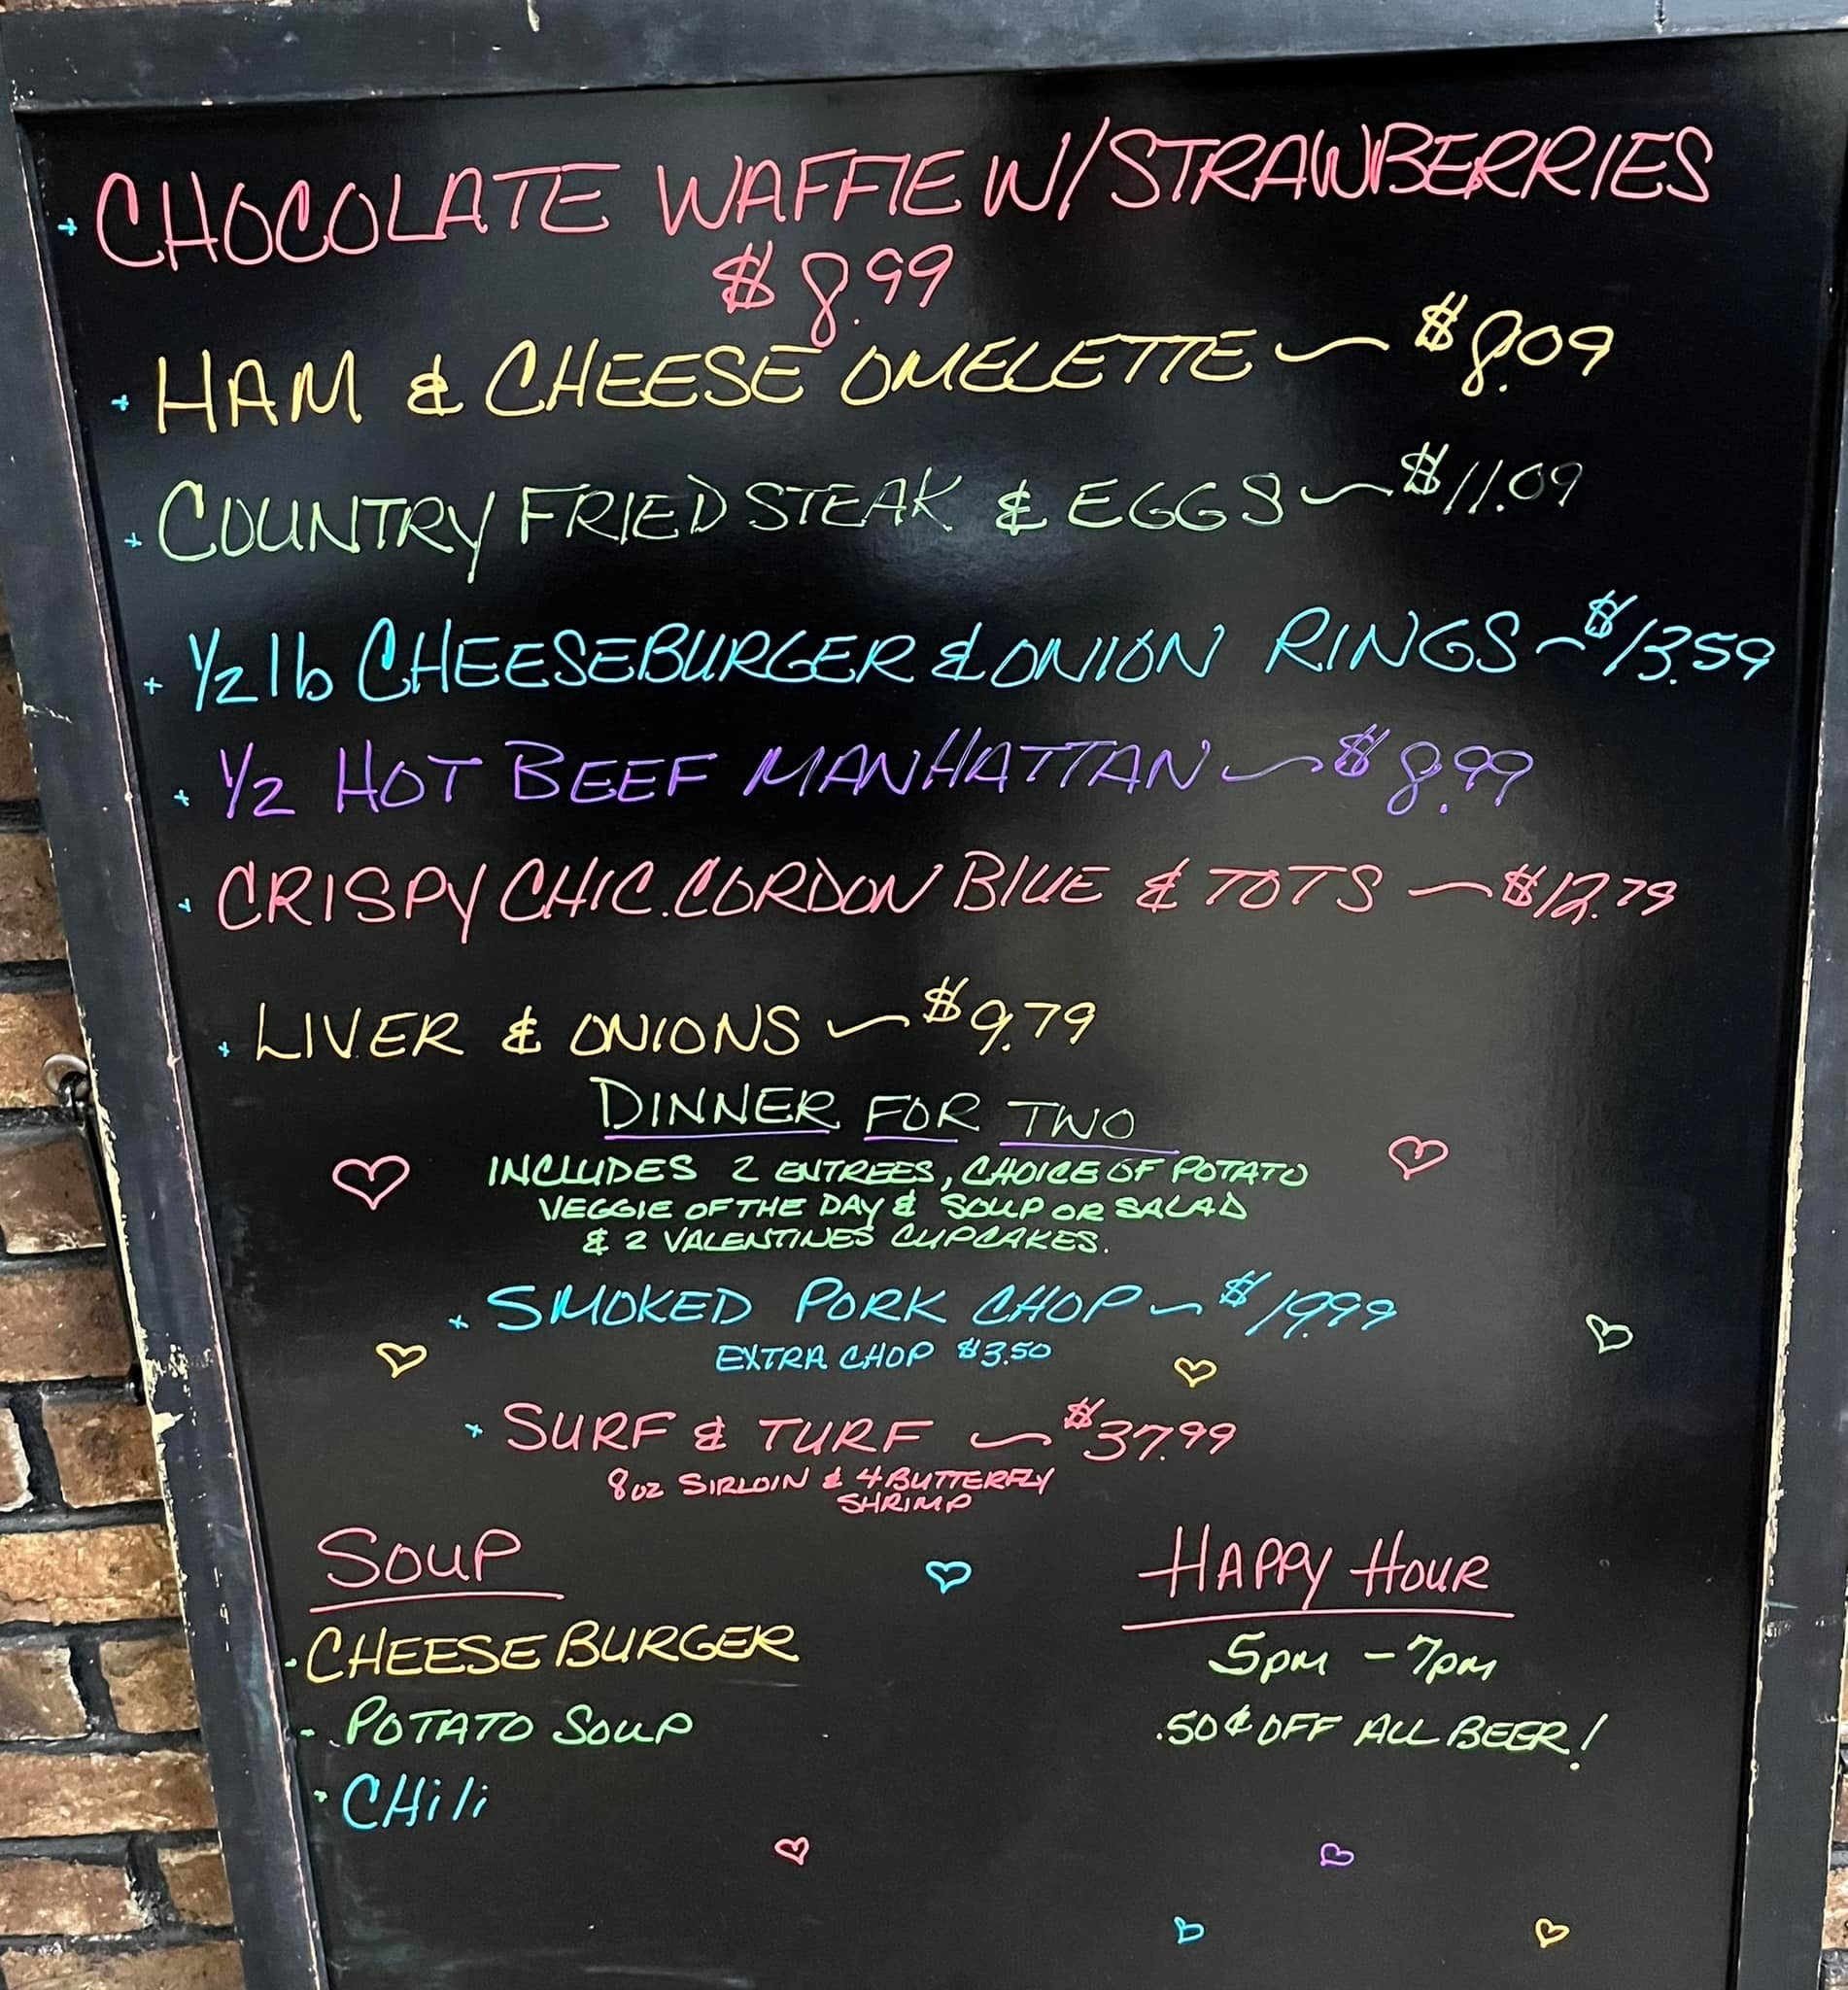 CHOCOLATE WAFFLE W/STRAWBERRIES
$8.99
HAM & CHEESE OMELETTE ~ $8.09
COUNTRY FRIED STEAK & EGGS ~ $11.09
1/2 lb CHEESEBURGER & ONION RINGS ~ $13.59
1/2 HOT BEEF MANHATTAN ~ $8.99
CRISPY CHIC. CORDON BLUE & TOTS ~ $12.79
LIVER & ONIONS ~ $9.79
DINNER FOR TWO
INCLUDES 2 ENTREES, CHOICE OF POTATO
VEGGIE OF THE DAY & SOUP OR SALAD
& 2 VALENTINES CUPCAKES.
SMOKED PORK CHOP ~ $19.99
EXTRA CHOP $3.50
SURF & TURF ~ $37.99
8oz SIRLOIN & 4 BUTTERFLY
SHRIMP
SOUP
CHEESE BURGER
POTATO SOUP
CHili
HAPPY HOUR
5pm - 7pm
.50¢ OFF ALL BEER!